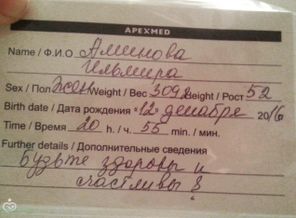 APEXMED
Name / Ф.И.О Аминова
Ильмира
Sex / Пол жен Weight / Вес 3092 Height / Рост 52
Birth date / Дата рождения «12» декабря 2016
Time / Время 20 h. / ч. 55 min. / мин.
Further details / Дополнительные сведения
Будьте здоровы и
счастливы!